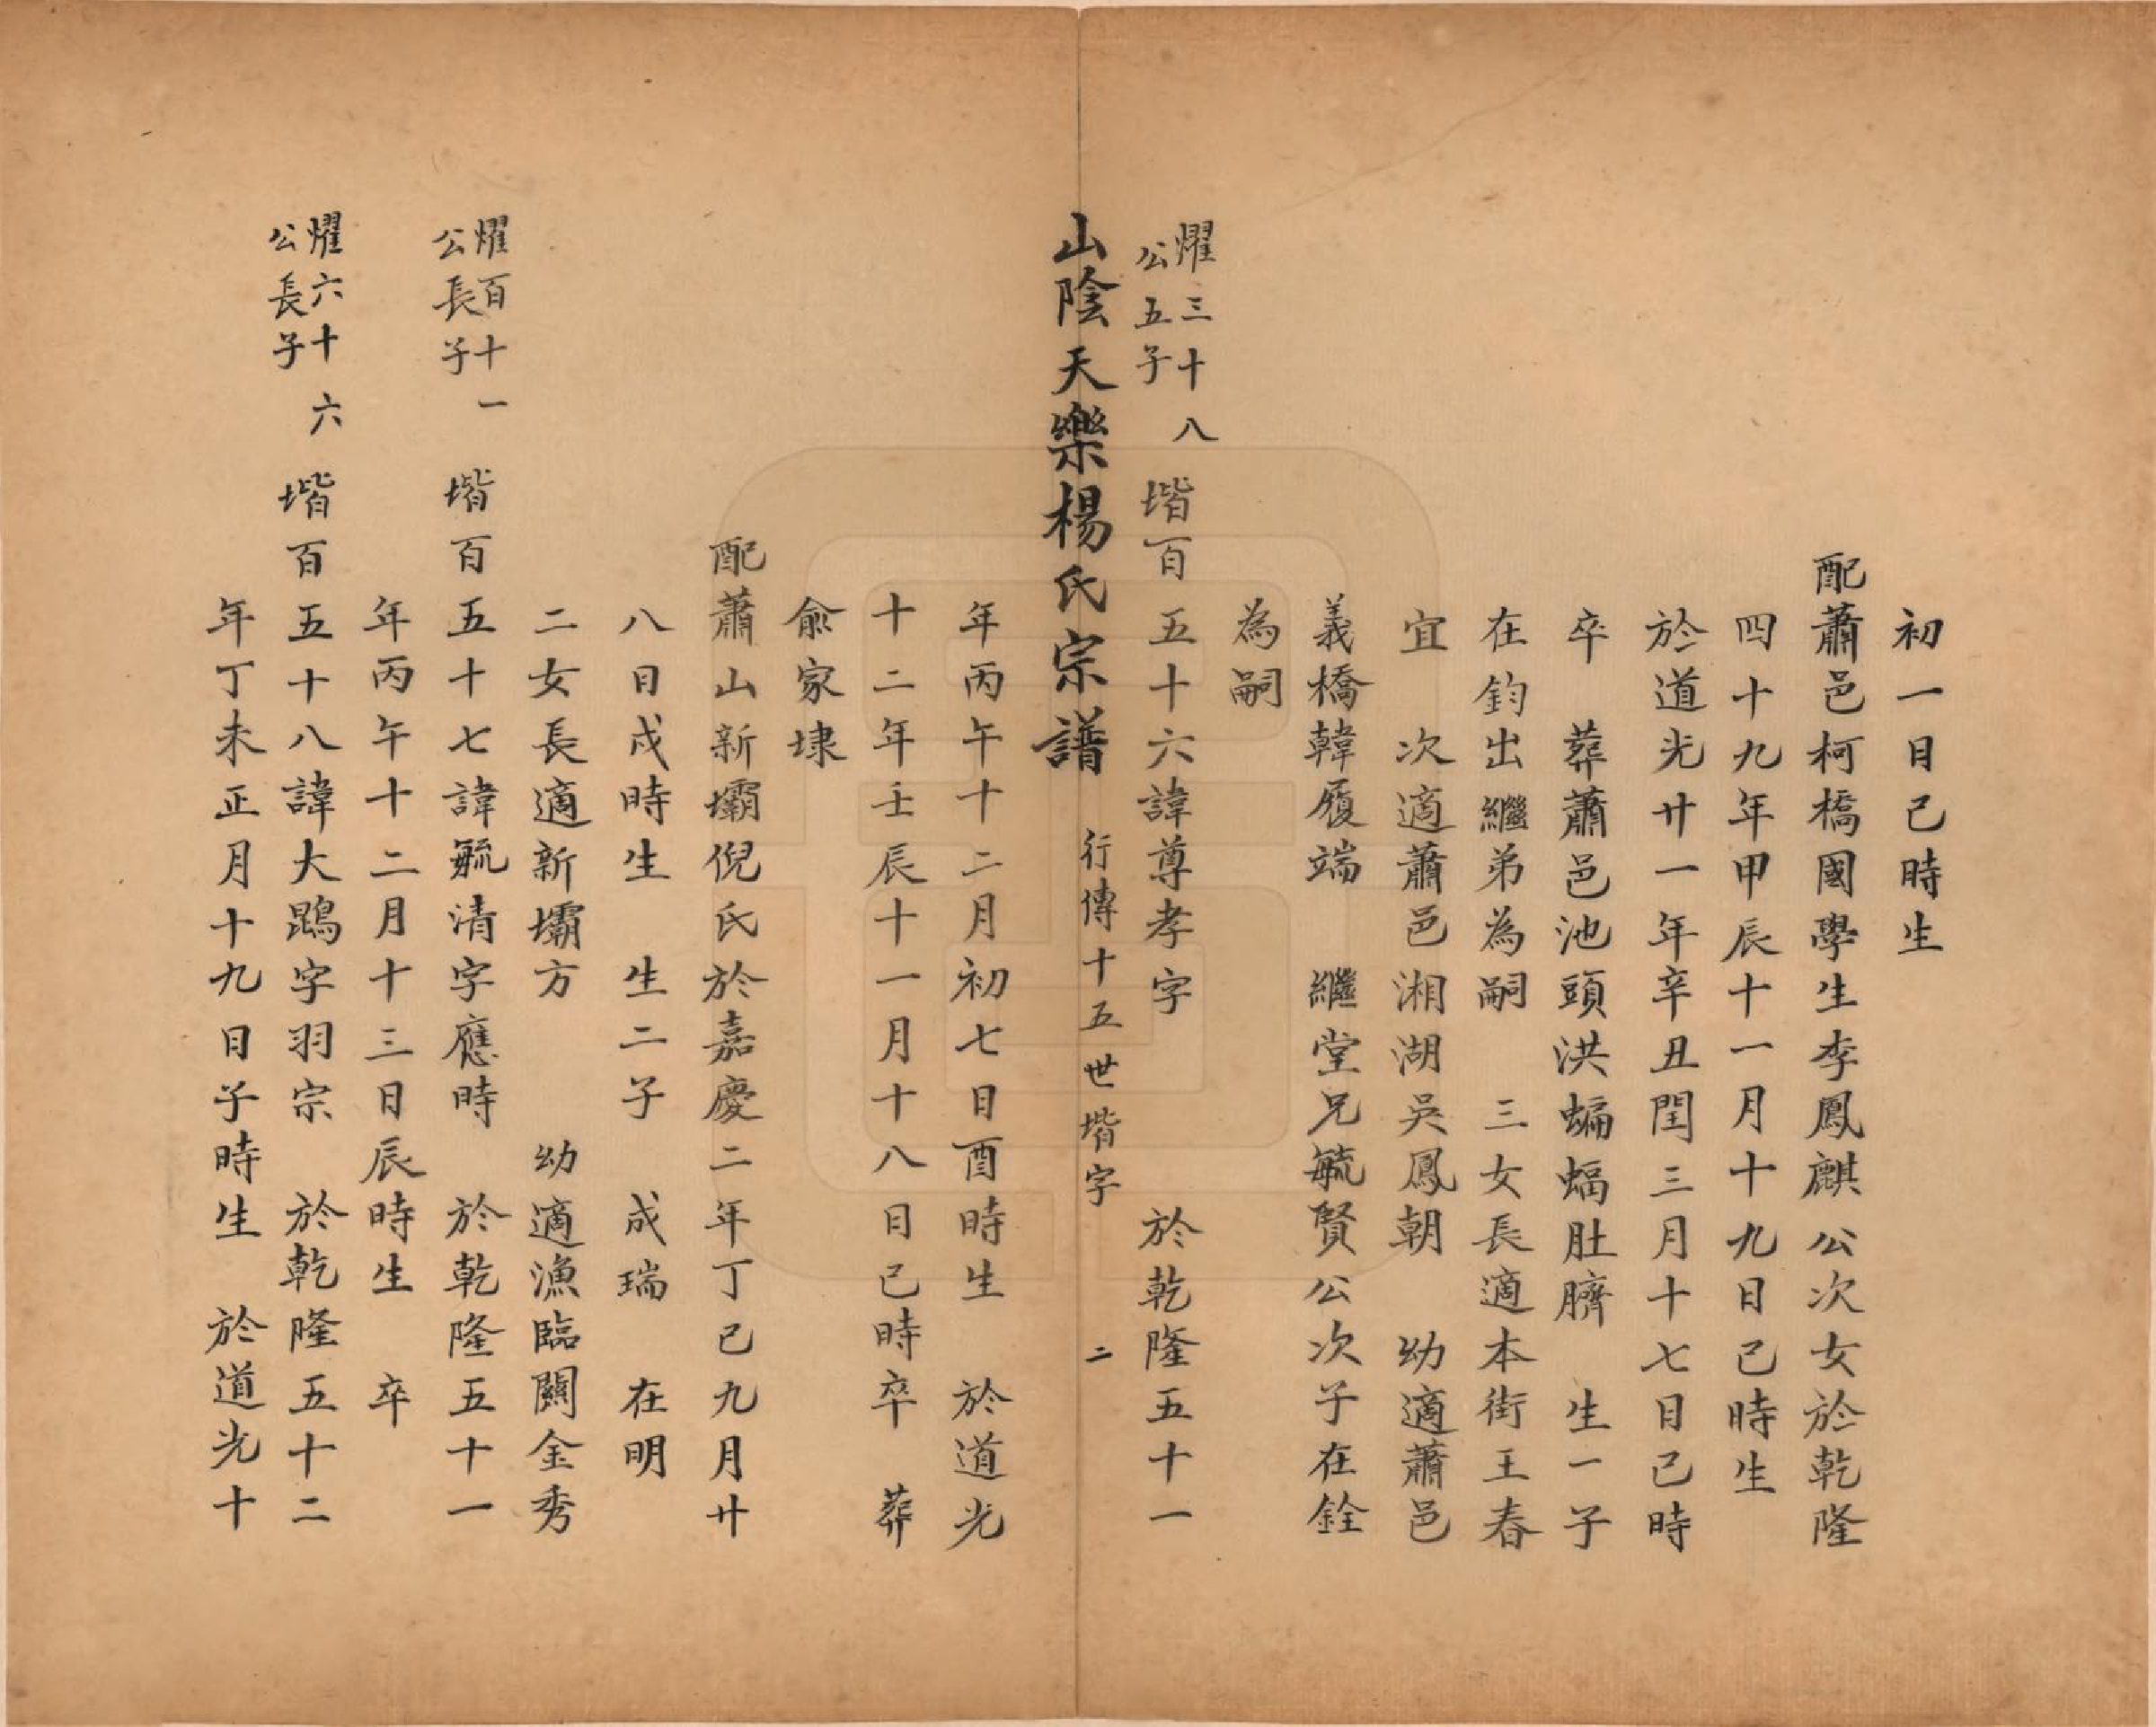 初一日己時生
配蕭邑柯橋國學生李鳳麒公次女於乾隆
四十九年甲辰十一月十九日己時生
於道光廿一年辛丑閏三月十七日己時
卒　葬蕭邑池頭洪蝙蝠肚臍　生一子
在鈞出繼弟為嗣　三女長適本街王春
宜　次適蕭邑湘湖吳鳳朝　幼適蕭邑
義橋韓履端　繼堂兄毓賢公次子在銓
為嗣
耀三十八
公五子
堦百五十六諱尊孝字　於乾隆五十一
山陰天樂楊氏宗譜　行傳十五世堦字　二
年丙午十二月初七日酉時生　於道光
十二年壬辰十一月十八日己時卒　葬
俞家埭
配蕭山新壩倪氏於嘉慶二年丁己九月廿
八日戌時生　生二子　成瑞　在明
二女長適新壩方　幼適漁臨關金秀
耀百十一
公長子
堦百五十七諱毓清字應時　於乾隆五十一
年丙午十二月十三日辰時生　卒
耀六十六
公長子
堦百五十八諱大鵾字羽宗　於乾隆五十二
年丁未正月十九日子時生　於道光十